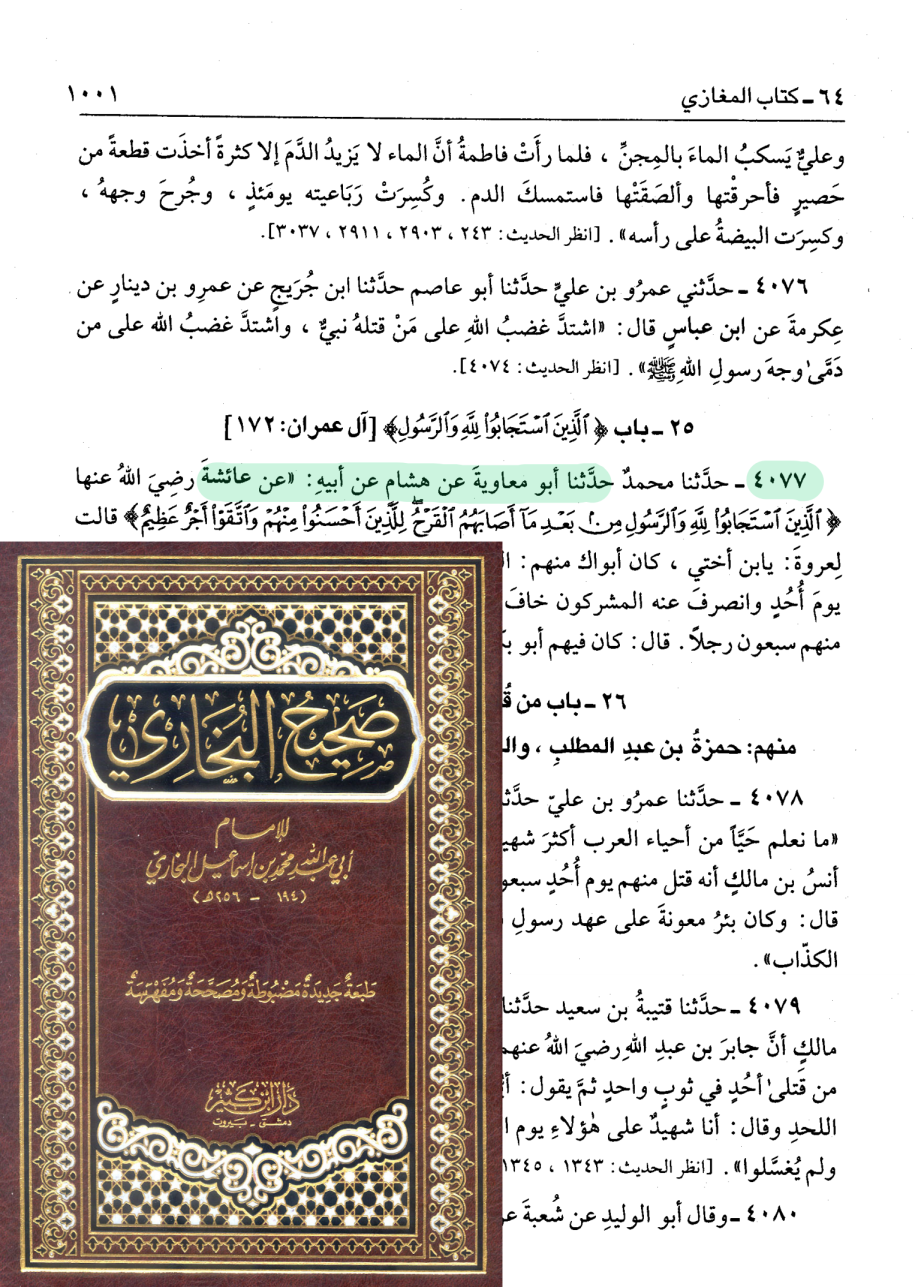 ٦٤ ـ كتاب المغازي ١٠٠١
وعليٌّ يَسكبُ الماءَ بالمِجنِّ ، فلما رأَتْ فاطمةُ أنَّ الماء لا يَزيدُ الدَّمَ إلا كثرةً أخذَت قطعةً من
حَصيرٍ فأحرقْتها وألصَقَتْها فاستمسكَ الدم. وكُسِرَتْ رَبَاعيته يومَئذٍ ، وجُرحَ وجههُ ،
وكسِرَت البيضةُ على رأسه» . [انظر الحديث: ٢٤٣ ، ٢٩٠٣ ، ٢٩١١ ، ٣٠٣٧].
٤٠٧٦ ـ حدَّثني عمرُو بن عليٍّ حدَّثنا أبو عاصم حدَّثنا ابن جُرَيجٍ عن عمرِو بن دينارٍ عن
عِكرمةَ عن ابن عباسٍ قال: «اشتدَّ غضبُ اللهِ على مَنْ قتلهُ نبيٌّ ، واشتدَّ غضبُ الله على من
دَمَّىٰ وجهَ رسولِ اللهِ ﷺ» . [انظر الحديث: ٤٠٧٤].
٢٥ ـ باب ﴿ ٱلَّذِينَ ٱسْتَجَابُوا۟ لِلَّهِ وَٱلرَّسُولِ﴾ [آل عمران: ١٧٢]
٤٠٧٧ ـ حدَّثنا محمدٌ حدَّثنا أبو معاويةَ عن هشام عن أبيهِ: «عن عائشةَ رضيَ اللهُ عنها
﴿ ٱلَّذِينَ ٱسْتَجَابُوا۟ لِلَّهِ وَٱلرَّسُولِ مِنۢ بَعْدِ مَآ أَصَابَهُمُ ٱلْقَرْحُ ۚ لِلَّذِينَ أَحْسَنُوا۟ مِنْهُمْ وَٱتَّقَوْا۟ أَجْرٌ عَظِيمٌ﴾ قالت
لِعروةَ: يابن أختي ، كان أبواك منهم:
يومَ أُحُدٍ وانصرفَ عنه المشركون خافَ
منهم سبعون رجلاً. قال: كان فيهم أبو
٢٦ ـ باب من
منهم: حمزةُ بن عبدِ المطلبِ ،
٤٠٧٨ ـ حدَّثنا عمرُو بن عليّ
«ما نعلم حَيَّاً من أحياء العرب أكثرَ
أنسُ بن مالكٍ أنه قتل منهم يوم أُحُدٍ
قال: وكان بئرُ معونةَ على عهد رسولِ
الكذّاب» .
٤٠٧٩ ـ حدَّثنا قتيبةُ بن سعيد حدَّثنا
مالكٍ أنَّ جابرَ بن عبدِ اللهِ رضيَ اللهُ
من قَتلىٰ أُحُدٍ في ثوبٍ واحدٍ ثمَّ يقول:
اللحدِ وقال: أنا شهيدٌ على هٰؤلاءِ يوم
ولم يُغسَّلوا» . [انظر الحديث: ١٣٤٣ ، ١٣٤٥
٤٠٨٠ ـ وقال أبو الوليدِ عن شُعبةَ
صَحِيحُ البُخَارِي
للإمام
أبي عبد الله محمد بن إسماعيل البخاري
(١٩٤ – ٢٥٦ هـ)
طَبعَةٌ جَدِيدَةٌ مَضبُوطَةٌ وَمُصَحَّحَةٌ وَمُفَهْرَسَةٌ
دار ابن كثير
دمشق - بيروت